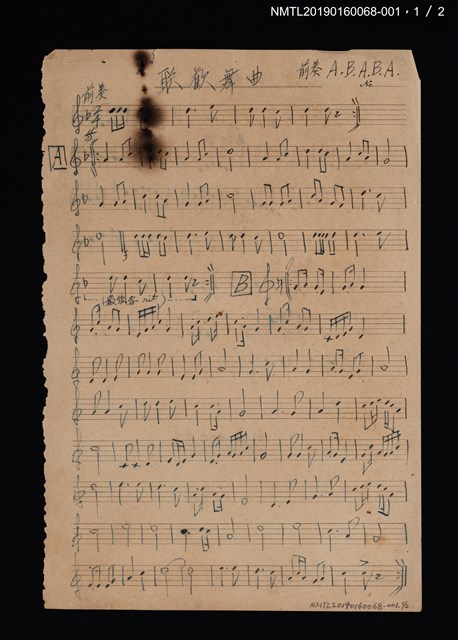 NMTL20190160068-001，1 / 2
歌歡舞曲 前奏 A.B.A.B.A.
No.
前奏
A
B
rit
NMTL20190160068-001.1/2